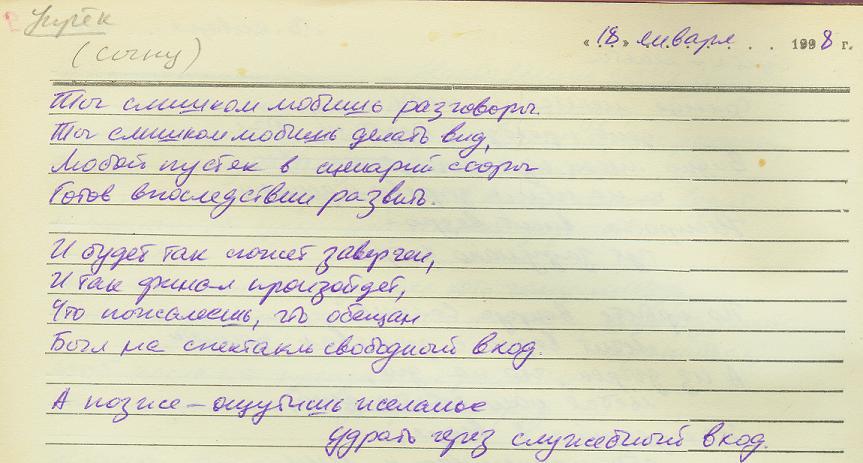 Упрёк
(сочну)
«18» января 1998 г.
Ты слишком любишь разговоры.
Ты слишком любишь делать вид,
Любой пустяк в сценарий ссоры
Готов впоследствии развить.
И будет так сюжет заверчен,
И так финал произойдет,
Что пожалеешь, что обещан
Был на спектакль свободный вход.
А позже – ощутишь желанье
удрать через служебный вход.